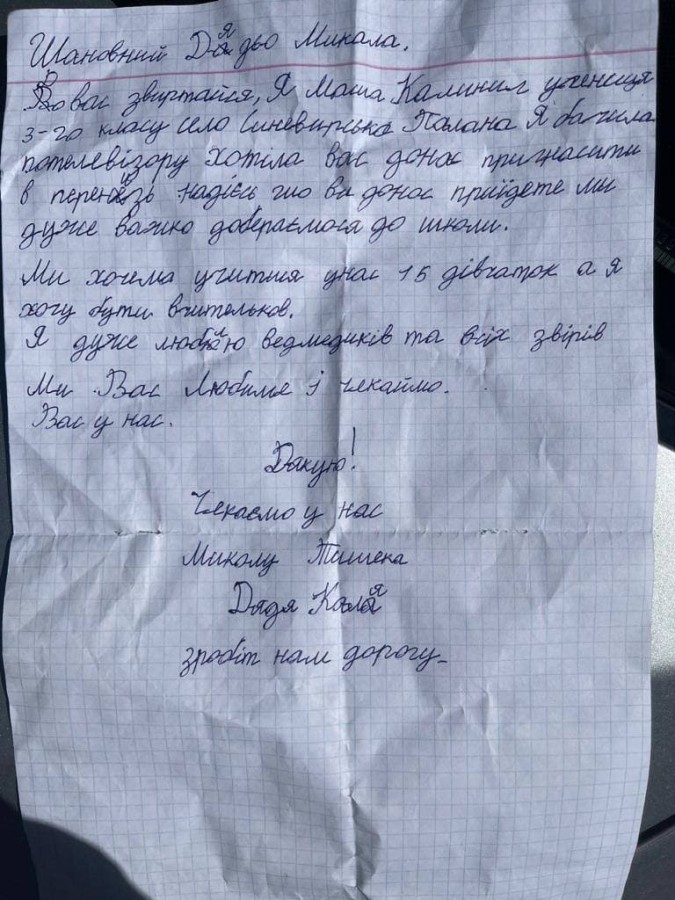 Шановний Дядьо Микала.
До вас звиртайся, Я Маша Калинич ученеця
3-го класу село Синевирська Палана Я бачила
потелевізору хотіла вас донас пригнасити
в перену надієсь что ви донас прийдете ми
дуже важко добераємося до школи.
Ми хочема учитися унас 15 дівчаток а я
хочу бути вчительков.
Я дуже люблю ведмедиків та всіх звірів
Ми Вас Любиме і чекаймо.
Вас у нас.
Дакую!
Чекаємо у нас
Миколу Тишека
Дядя Каля
зробіт нам дорогу